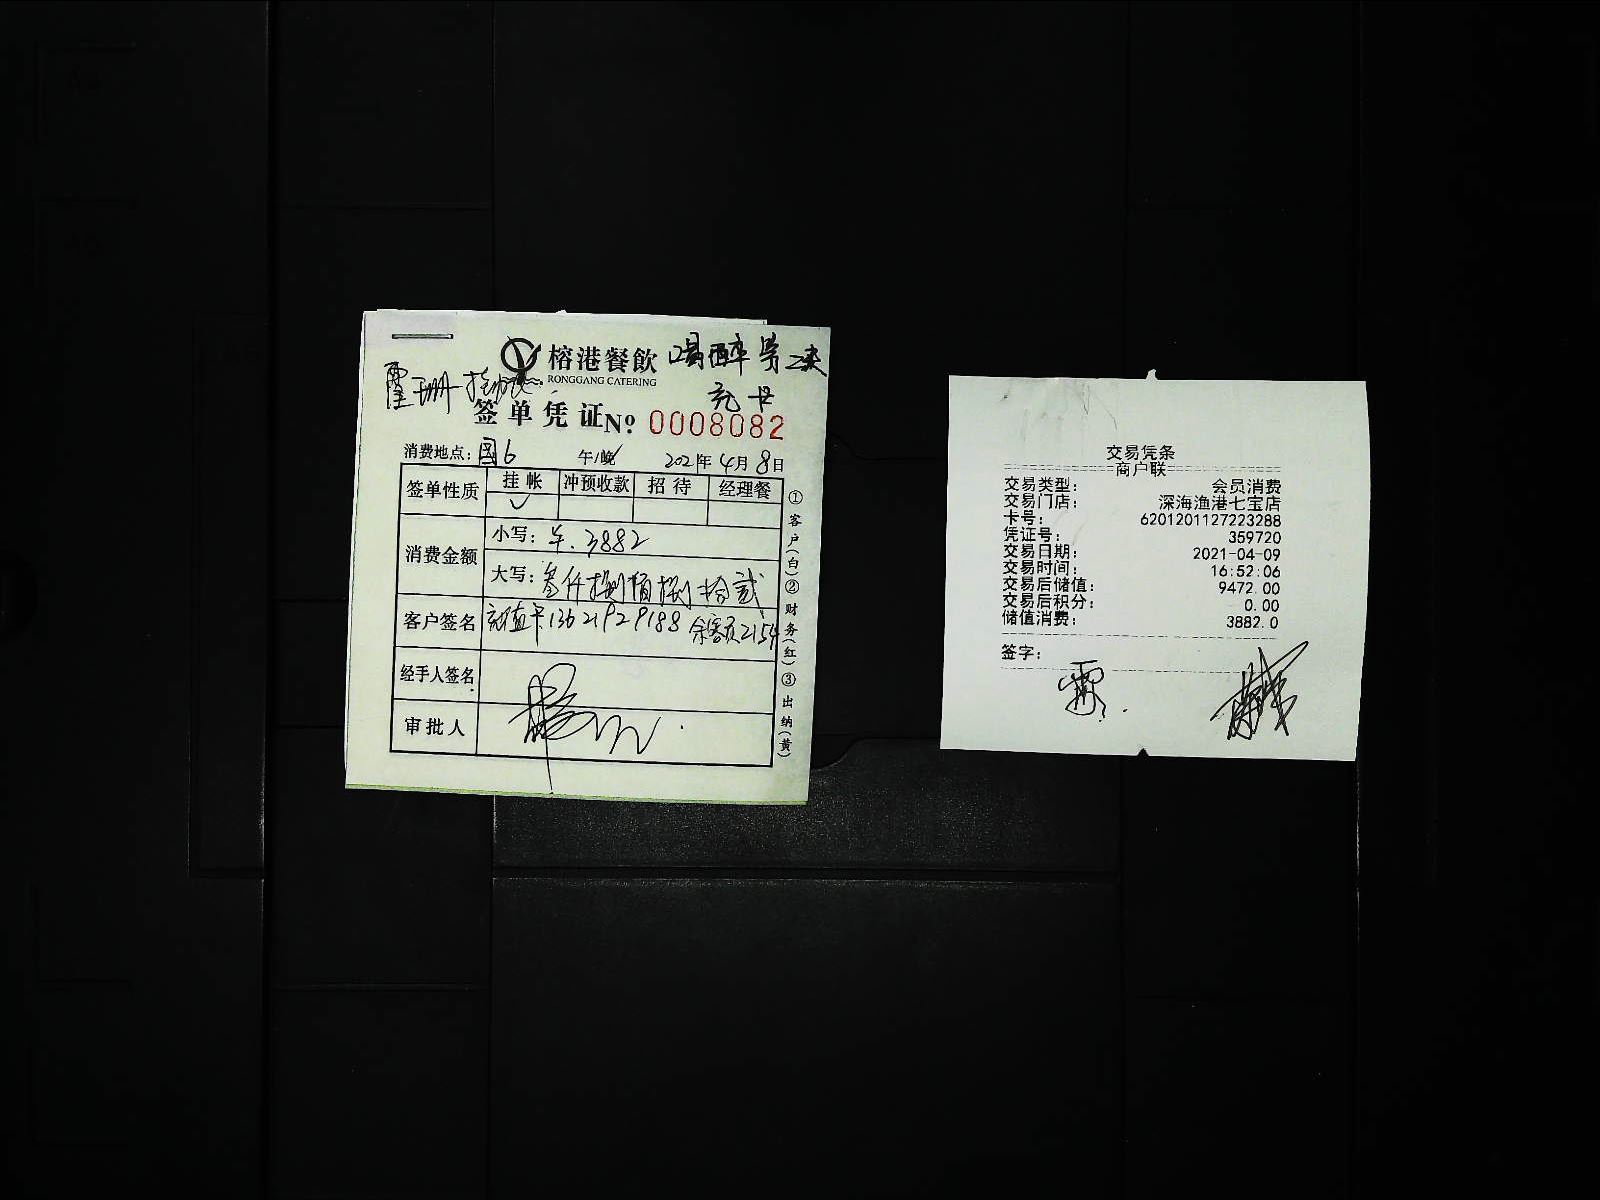 榕港餐飲 喝醉
RONGGANG CATERING
充卡
签单凭证 No 0008082
消费地点：国6 午/晚 2021年4月8日
签单性质 挂帐 冲预收款 招待 经理餐
✓
消费金额 小写：￥.3882
大写：叁仟捌佰捌拾贰
客户签名 充值卡13621929188 余额2154
经手人签名
审批人
①客户(白)②财务(红)③出纳(黄)
交易凭条
商户联
交易类型： 会员消费
交易门店： 深海渔港七宝店
卡号： 6201201127223288
凭证号： 359720
交易日期： 2021-04-09
交易时间： 16:52:06
交易后储值： 9472.00
交易后积分： 0.00
储值消费： 3882.0
签字：